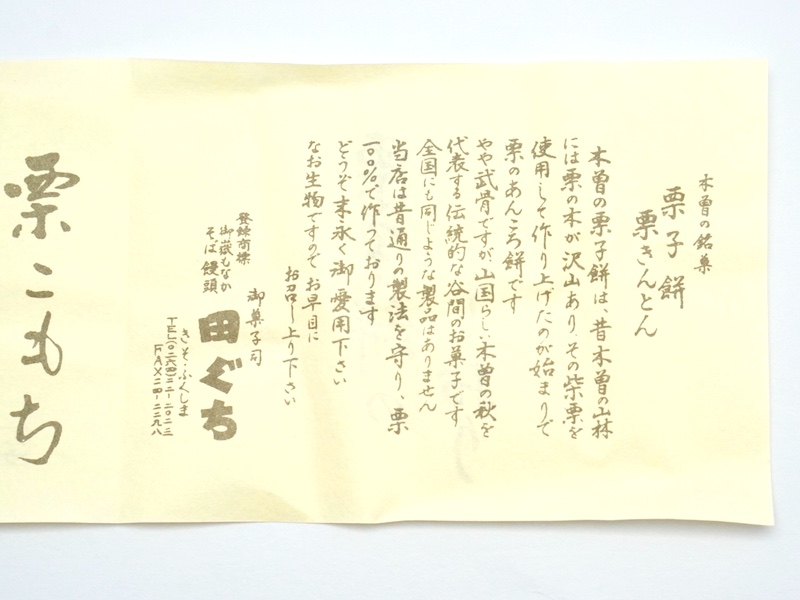 木曽の銘菓
栗子餅
栗きんとん
木曽の栗子餅は、昔木曽の山林
には栗の木が沢山あり、その柴栗を
使用して作り上げたのが始まりで
栗のあんころ餅です
やや武骨ですが、山国らしい木曽の秋を
代表する伝統的な谷間のお菓子です
全国にも同じような製品はありません
当店は昔通りの製法を守り、栗
一〇〇%で作っております
どうぞ末永く御愛用下さい
なお生物ですので お早目に
お召し上り下さい
御菓子司
田ぐち
登録商標
御嶽もなか
そば饅頭
きそ・ふくしま
TEL(〇二六四)二二-二〇二三
FAX二四-二二九八
栗こもち